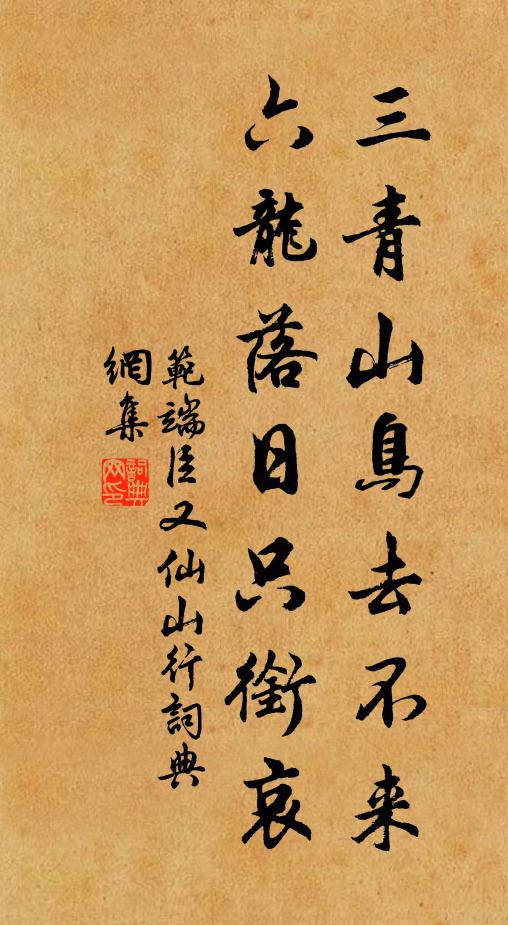 三青山鳥去不来
六龍落日只銜哀
範端臣又仙山行詞典
網集
詞典
网印